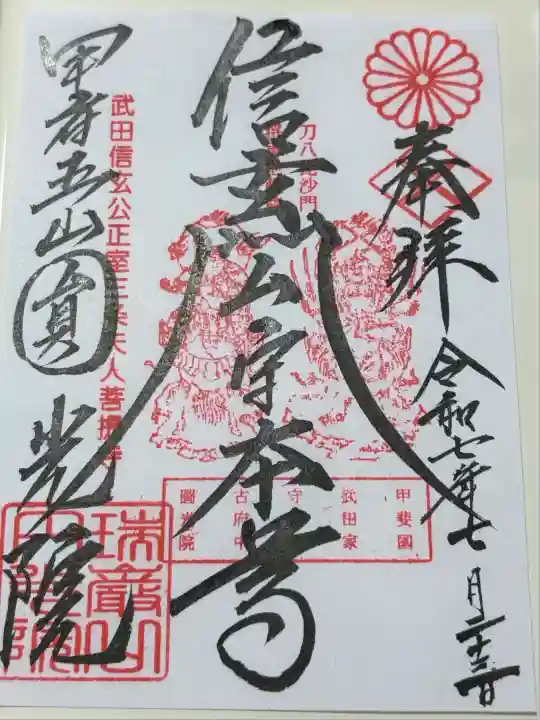 奉拝
令和七年七月二十三日
刀八毘沙門
信玄公守本尊
甲斐國
武田家
守
古府中
圓光院
武田信玄公正室三条夫人菩提寺
甲府五山
圓光院
瑞巌山
圓光院